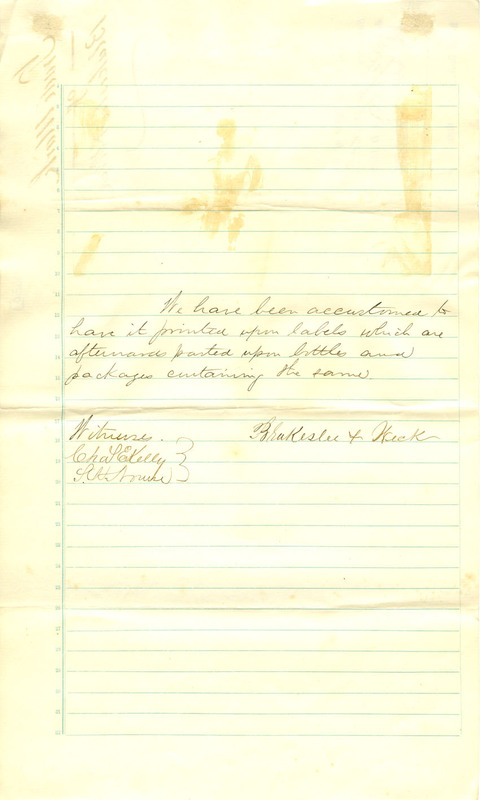 We have been accustomed to
have it printed upon labels which are
afterwards pasted upon bottles and
packages containing the same.
Witnesses.
Blakeslee &
Chas E Kelly